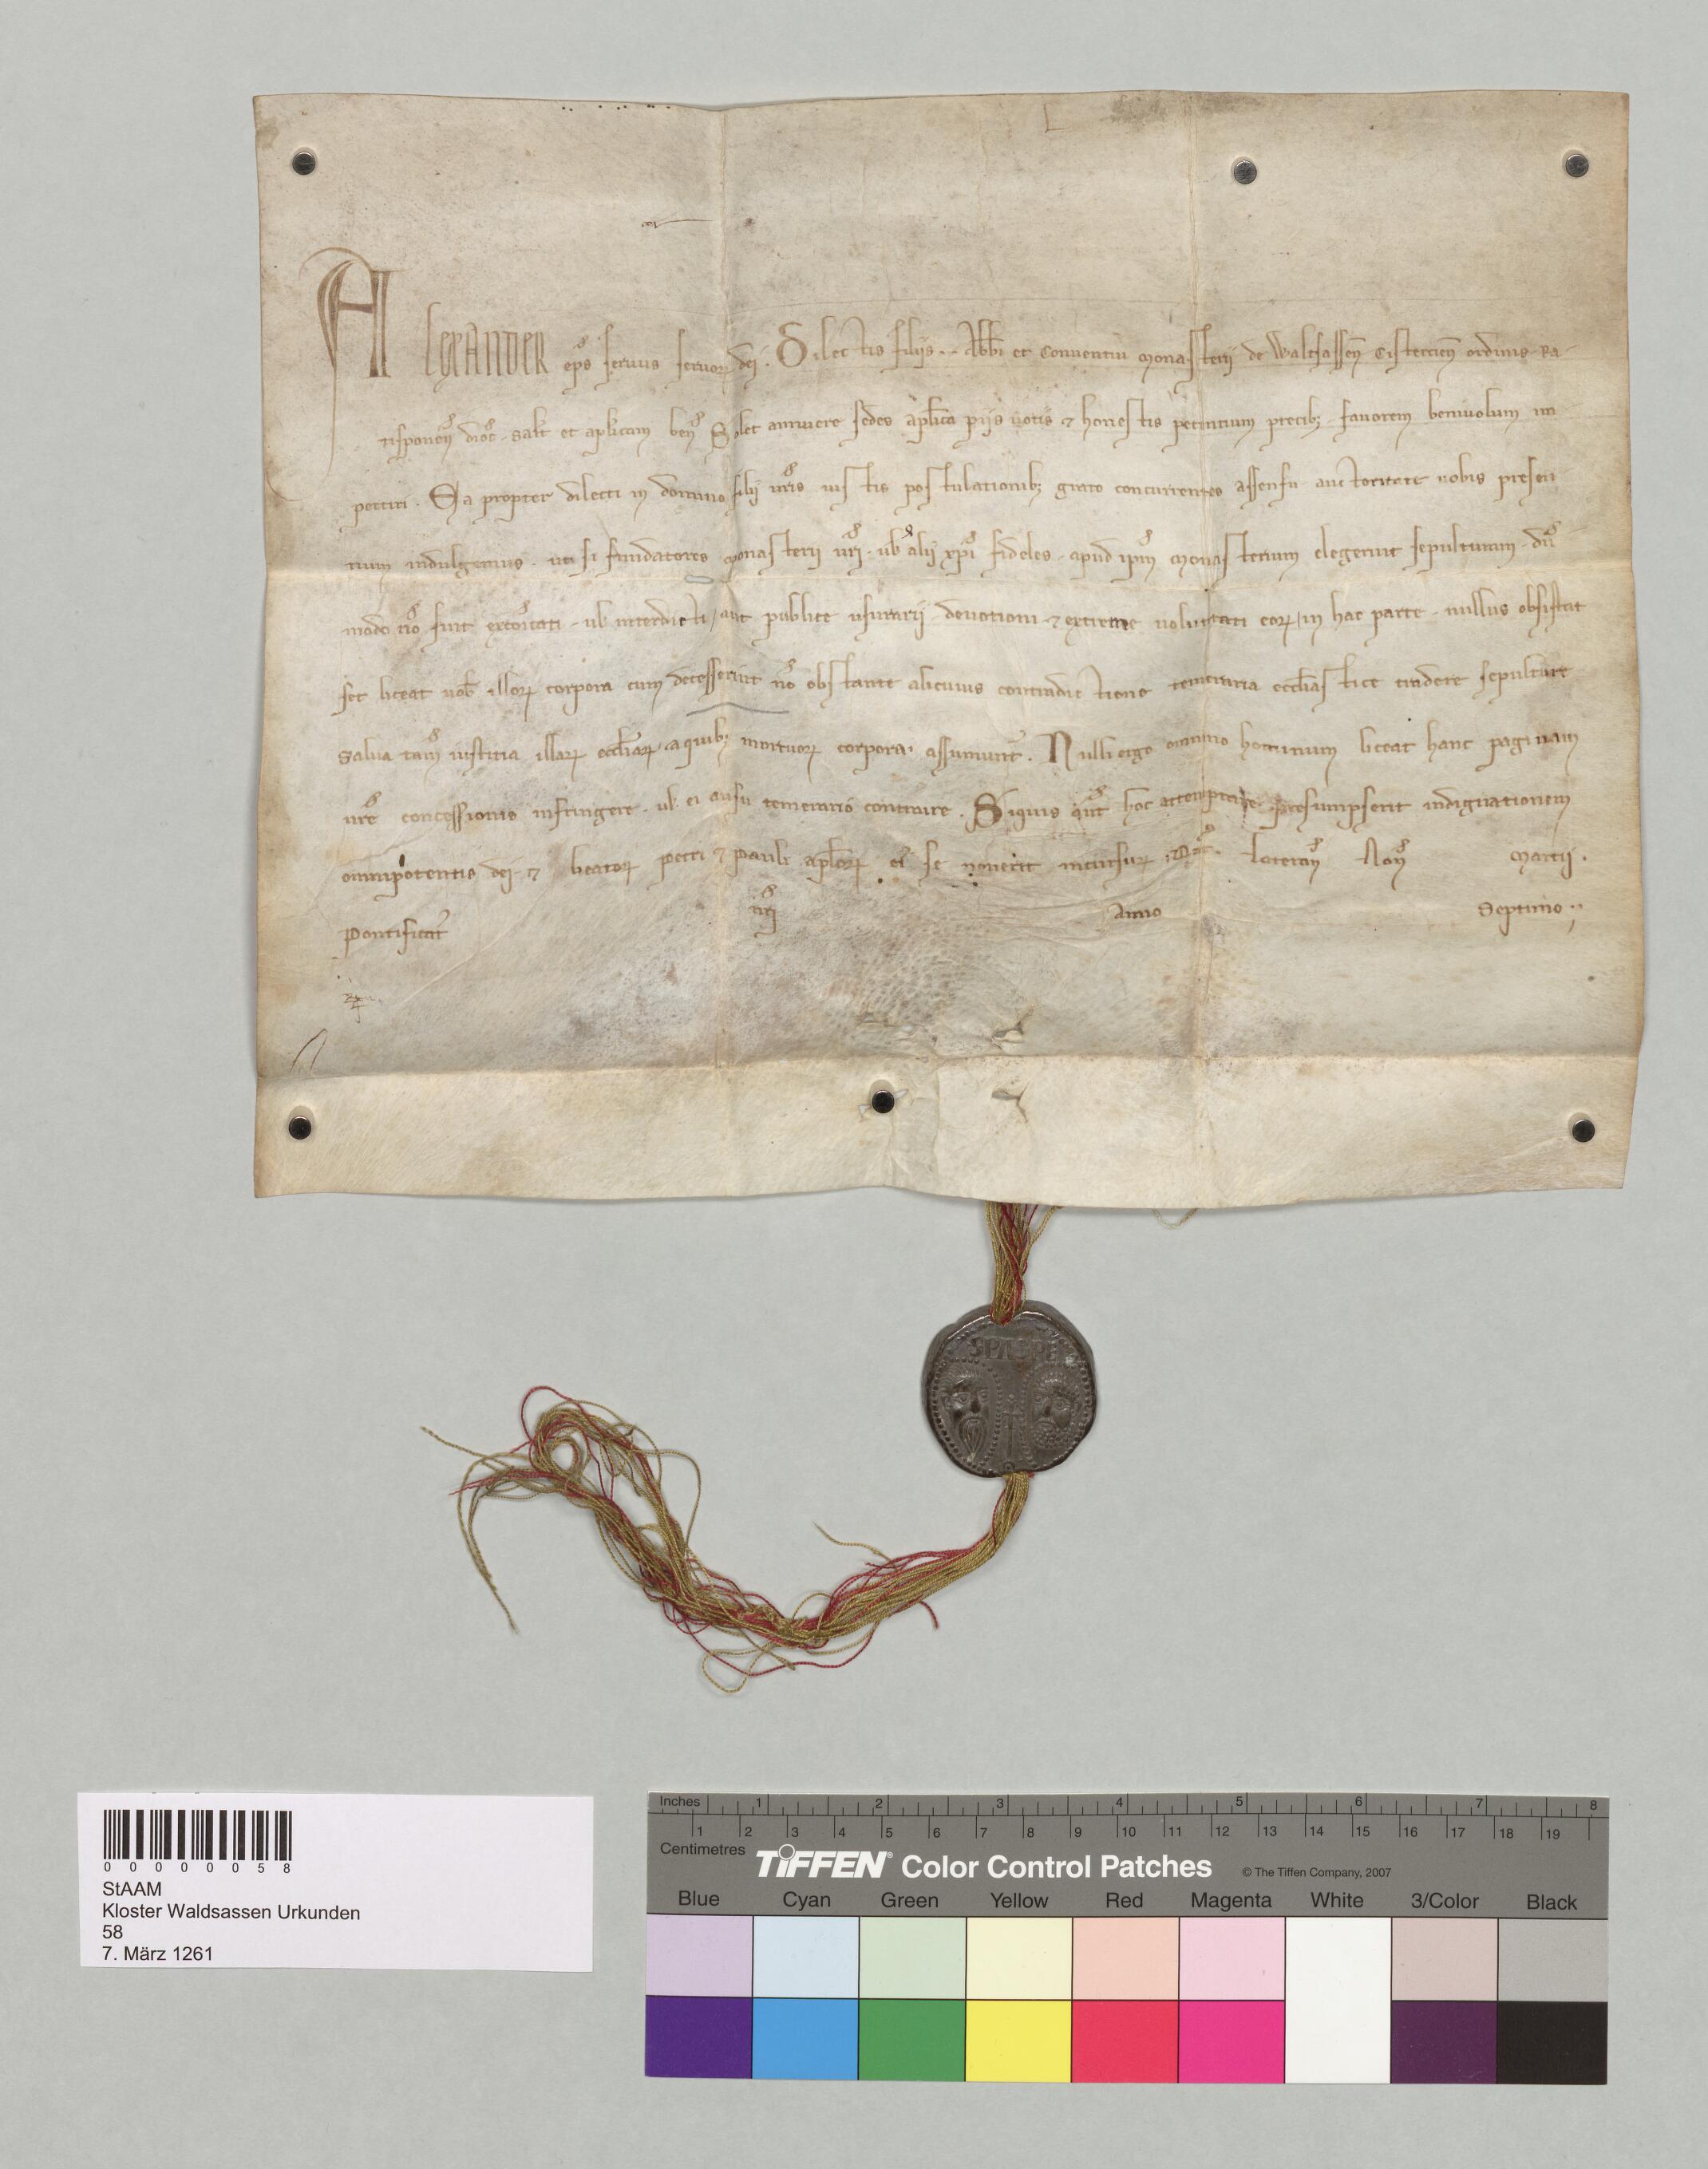 Alexander ep̄s seruus seruoꝝ dei. Dilectis filijs .. Abbi et Conuentui Monasterij de Waltsassen̄ Cistercien̄ ordinis Ra-
tisponen̄ dioc̄. salt̄ et apl̄icam ben̄. Solet annuere sedes apl̄ica pijs uotis ⁊ honestis petentium precibꝫ fauorem beniuolum im
pertiri. Ea propter dilecti in domino filij ur̄is iustis postulationibꝫ grato concurrentes assensu auctoritate uobis presen
tium indulgemus. ut si fundatores Monasterij ur̄i. ul̄ alij xp̄i fideles. apud ip̄m Monasterium elegerint sepulturam. dū
modo nō sint excōicati. ul̄ interdicti, aut publice usurarij. deuotioni ⁊ extreme uoluntati eoꝝ, in hac parte. nullus obsistat
set liceat uob̄ illoꝝ corpora cum decesserint nō obstante alicuius contradictione temeraria eccl̄iastice tradere sepulture
Salua tam̄ iustitia illaꝝ eccl̄iaꝝ, a quibꝫ mortuoꝝ corpora assumunt̄. Nulli ergo omnino hominum liceat hanc paginam
nr̄e concessionis infringere. ul̄ ei ausu temerario contraire. Siquis aūt hoc attemptare presumpserit indignationem
omnipotentis dei. ⁊ beatoꝝ Petri ⁊ Pauli apl̄oꝝ ei' se nouerit incursuꝝ. Dat̄. Lateran̄ Non̄ Martij.
Pontificat̄ nr̄i Anno Septimo.
SPASPE
00000058
StAAM
Kloster Waldsassen Urkunden
58
7. März 1261
Inches 1 2 3 4 5 6 7 8
1 2 3 4 5 6 7 8 9 10 11 12 13 14 15 16 17 18 19
Centimetres
TIFFEN® Color Control Patches © The Tiffen Company, 2007
Blue Cyan Green Yellow Red Magenta White 3/Color Black